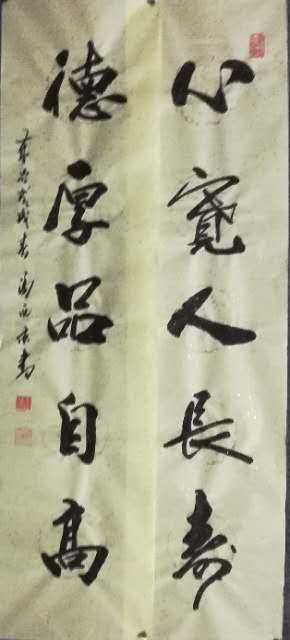 心寬人長壽
德厚品自高